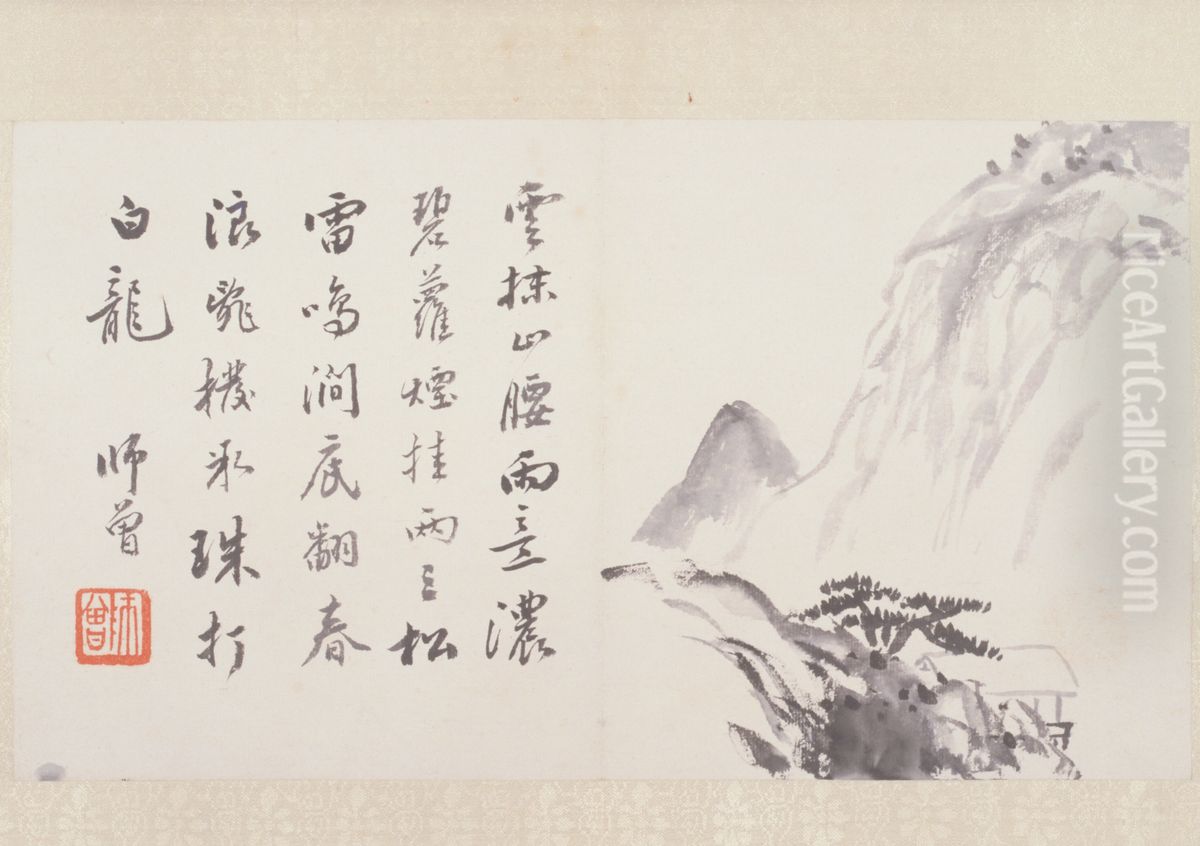 雲抹山腰雨意濃
碧蘿煙挂兩三松
雷鳴澗底翻春
浪撥氷珠打
白龍
師曾
NiceArtGallery.com